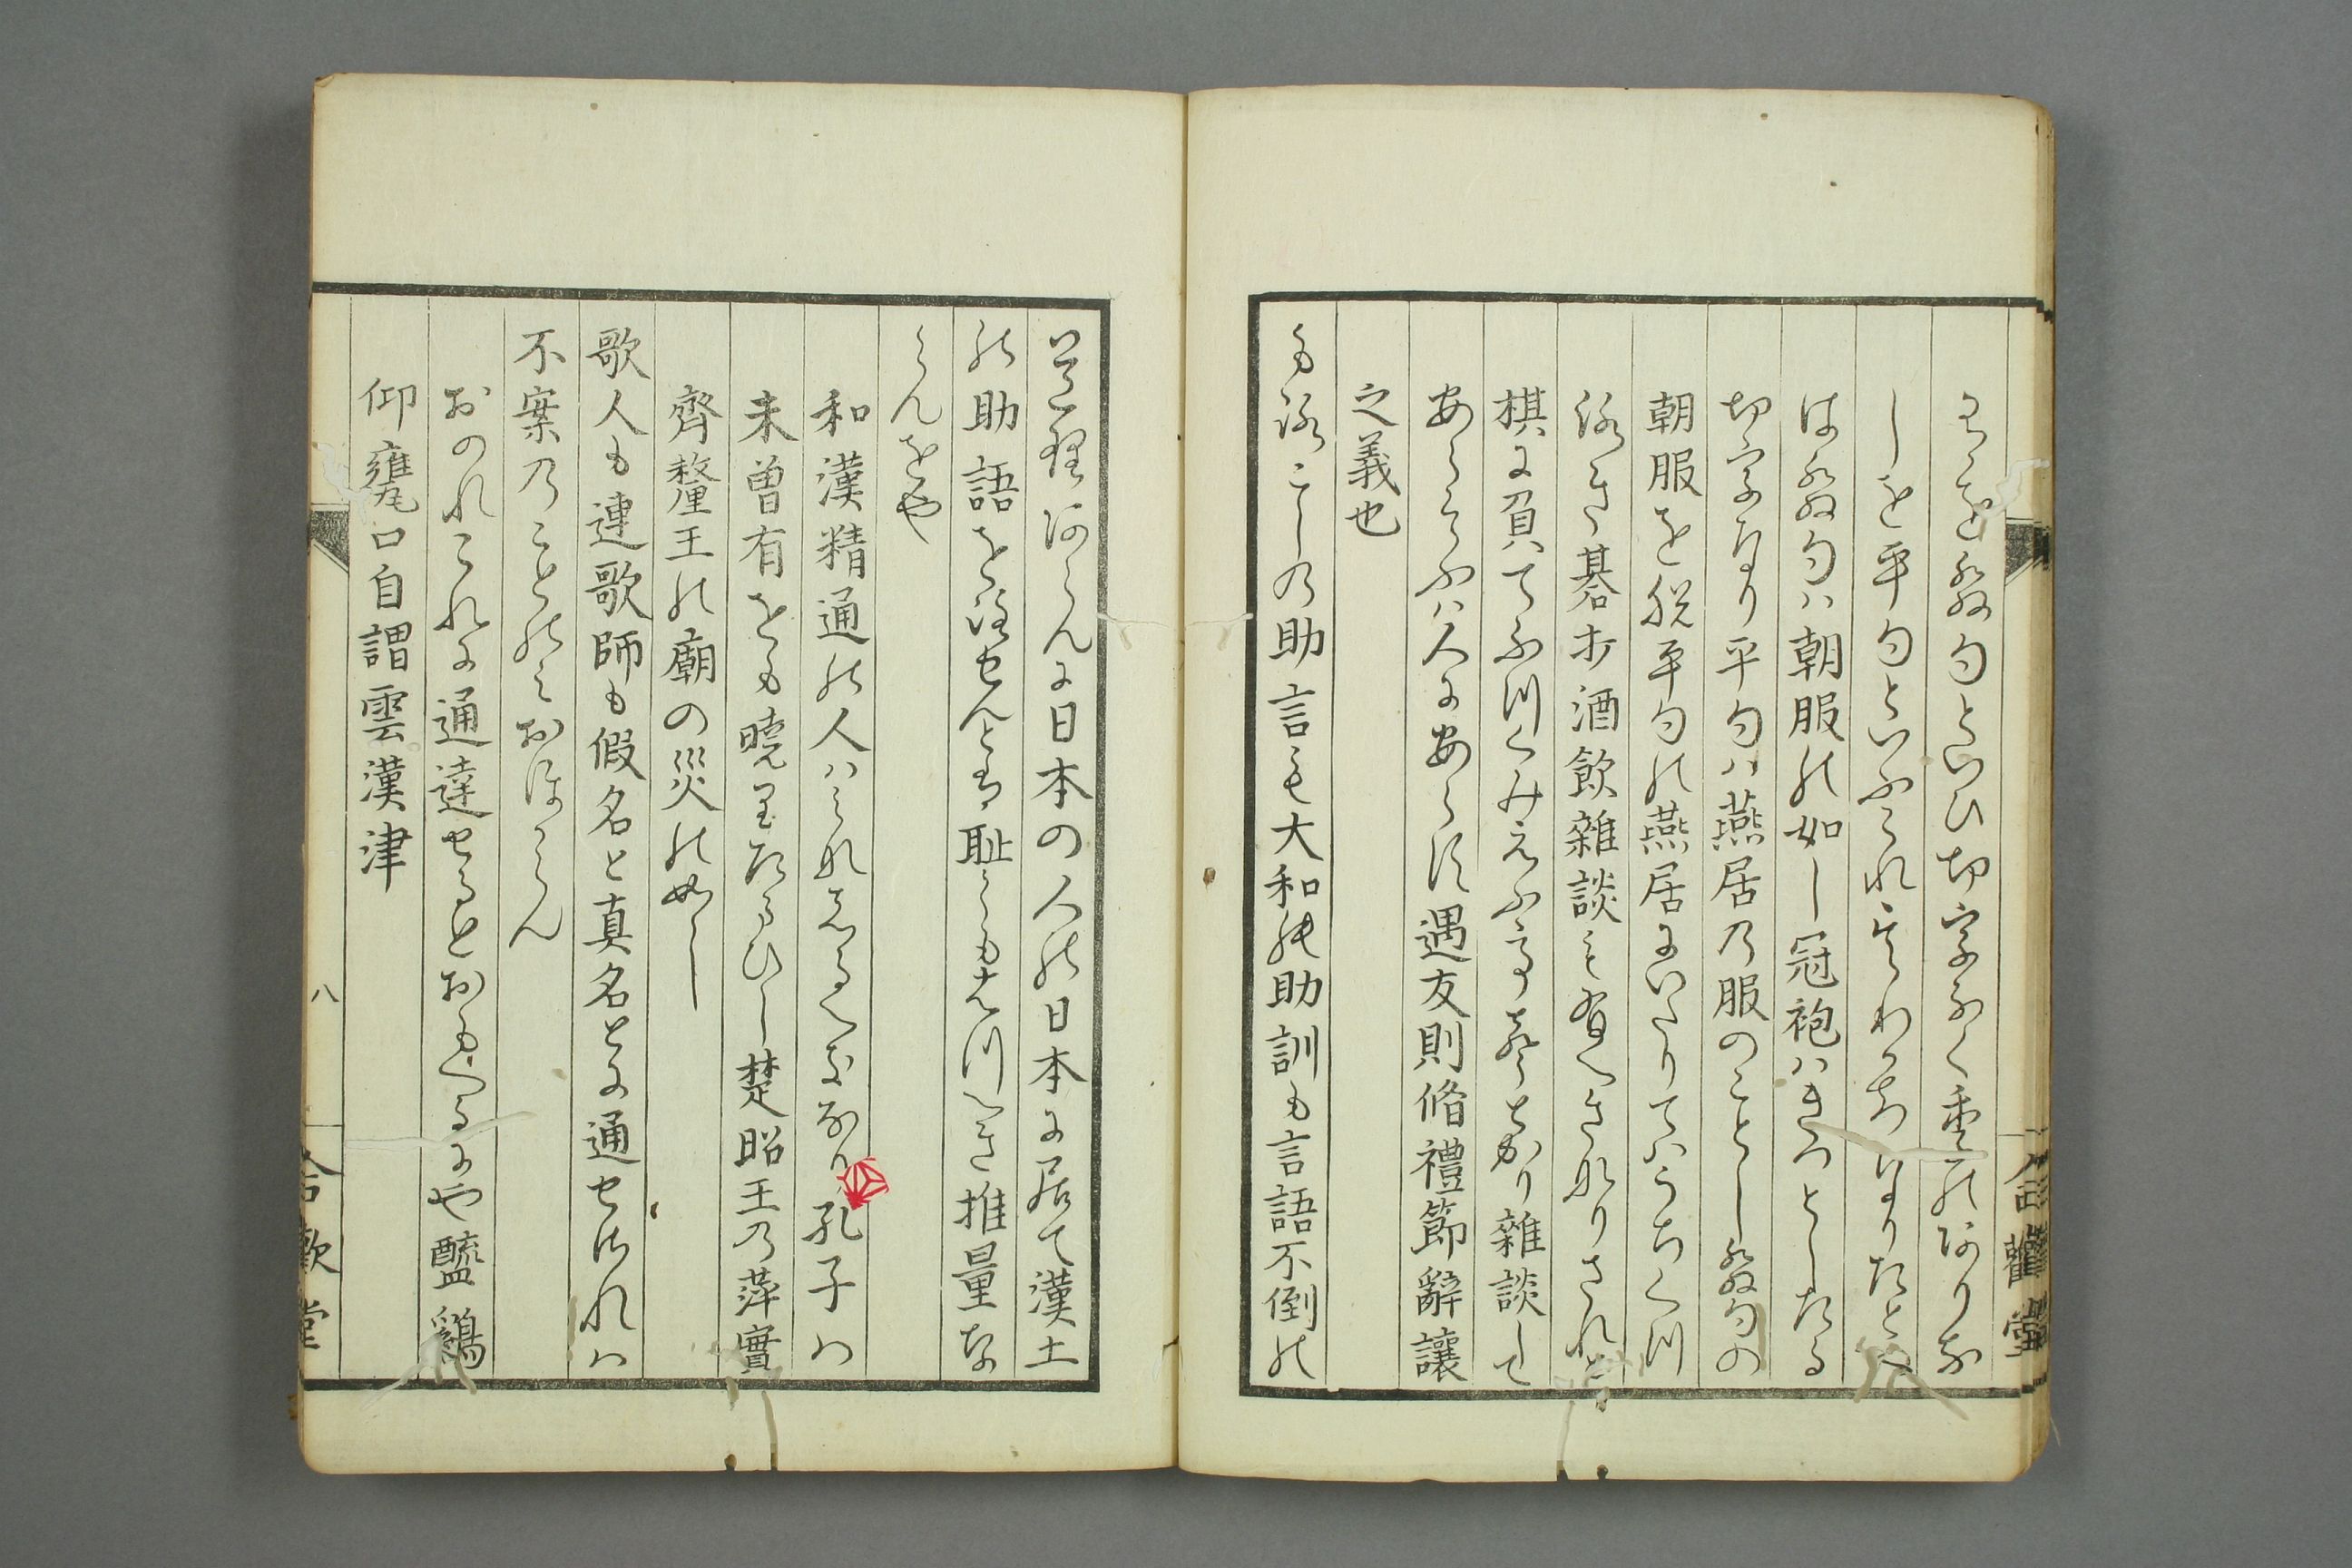 る を發句といひ切字なく季のありな
しを平句といふこれ わかち なりたとへ
は發句ハ朝服の如し冠袍ハきつとしたる
切字なり平句ハ燕居乃服のことし發句の
朝服を脱平句の燕居にいたりてハうちくつ
ろき碁打酒飲雜談も有へきなりされと
棋に負てふつくみえふ 雜談して
あらそふハ人にあらす遇友則脩禮節辭讓
之義也
もろこしの助言も大和の助訓も言語不倒の
道理あらんに日本の人の日本に居て漢土
の助語を注せんとハ耻らもすへき推量な
らんをや
和漢精通の人ハこれしるへきなり孔子ハ
未曾有をも曉 たまひし楚昭王乃萍實
齊釐王の廟の災の如し
歌人も連歌師も假名と真名とに通せされハ
不案乃ことのみおほからん
おのれこれに通達せるとおもへるにや醯鷄
仰甕口自謂雲漢津
八
合歡堂
合歡堂